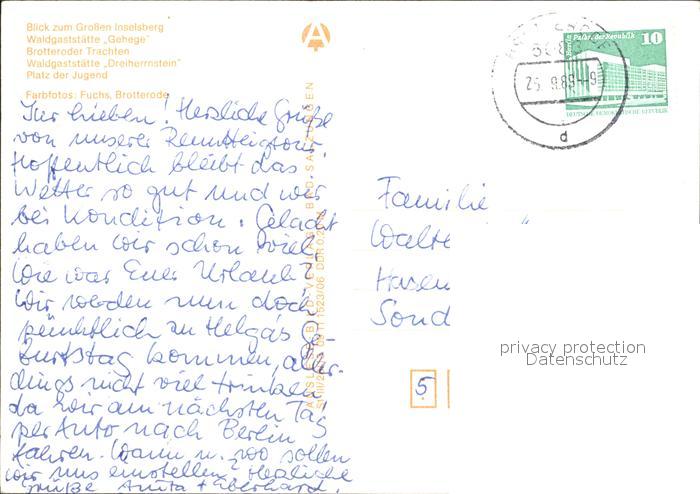 Blick zum Großen Inselsberg
Waldgaststätte „Gehege"
Brotteroder Trachten
Waldgaststätte „Dreiherrnstein"
Platz der Jugend
Farbfotos: Fuchs, Brotterode
Ihr Lieben! Herzliche Grüße
von unserer Rennsteigtour.
Hoffentlich bleibt das
Wetter so gut und wir
bei Kondition. Gelacht
haben wir schon viel.
Wie war Euer Urlaub?
Wir werden nun doch
pünktlich zu Helgas Ge-
burtstag kommen, aller-
dings nicht viel trinken
da wir am nächsten Tag
per Auto nach Berlin
fahren. Wann u. wo sollen
wir uns einstellen? Herzliche
Grüße Anita + Eberhard.
BILD UND VERLAG BAD SALZUNGEN
DDR
A
Berlin Palast der Republik 10
DEUTSCHE DEMOKRATISCHE REPUBLIK
25.9.89-9
d
Familie
Walte
Hasen
Sond
5
privacy protection
Datenschutz